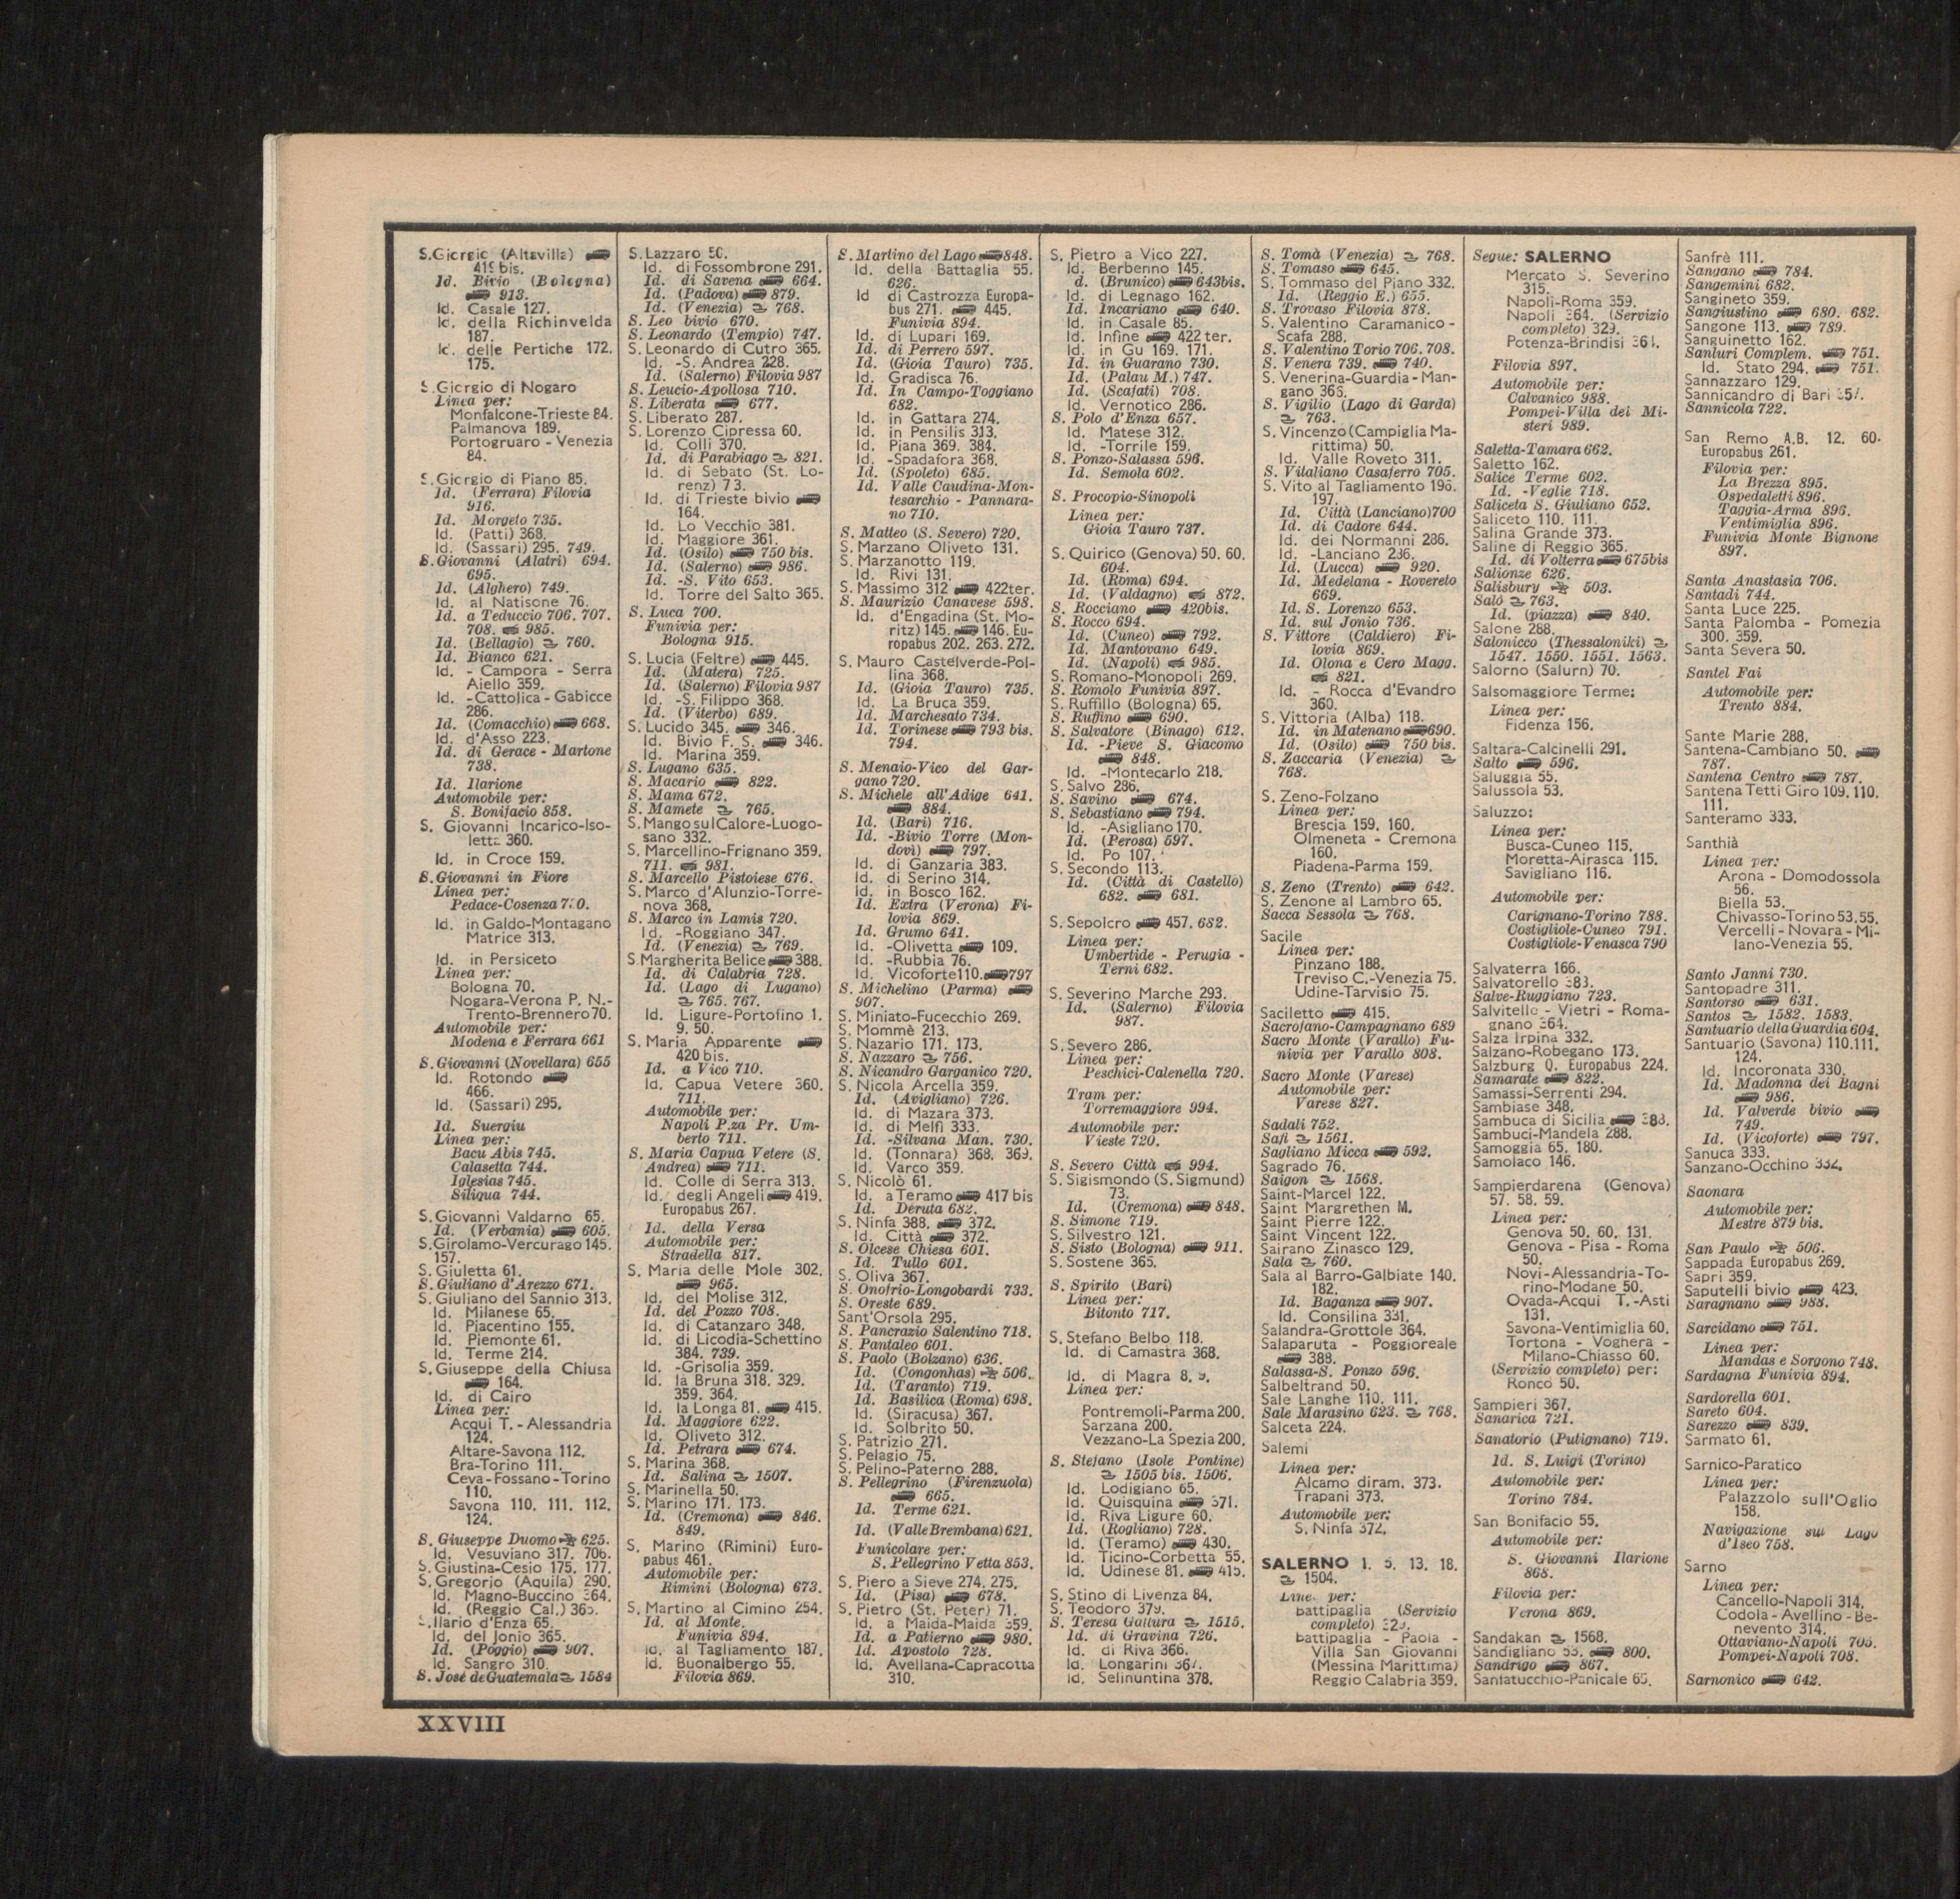 S.Giorgio (Altavilla)
419 bis.
Id. Bivio (Bologna)
913.
Id. Casale 127.
Id. della Richinvelda
187.
Id. delle Pertiche 172.
175.
S.Giorgio di Nogaro
Linea per:
Monfalcone-Trieste 84.
Palmanova 189.
Portogruaro - Venezia
84.
S.Giorgio di Piano 85.
Id. (Ferrara) Filovia
916.
Id. Morgeto 735.
Id. (Patti) 368.
Id. (Sassari) 295. 749.
S.Giovanni (Alatri) 694.
695.
Id. (Alghero) 749.
Id. al Natisone 76.
Id. a Teduccio 706. 707.
708. 985.
Id. (Bellagio) 760.
Id. Bianco 621.
Id. - Campora - Serra
Aiello 359.
Id. - Cattolica - Gabicce
286.
Id. (Comacchio) 668.
Id. d'Asso 223.
Id. di Gerace - Martone
738.
Id. Ilarione
Automobile per:
S. Bonifacio 858.
S. Giovanni Incarico-Iso-
letta 360.
Id. in Croce 159.
S.Giovanni in Fiore
Linea per:
Pedace-Cosenza
Id. in Galdo-Montagano
Matrice 313.
Id. in Persiceto
Linea per:
Bologna 70.
Nogara-Verona P. N.-
Trento-Brennero 70.
Automobile per:
Modena e Ferrara 661
S.Giovanni (Novellara) 655
Id. Rotondo
466.
Id. (Sassari) 295.
Id. Suergiu
Linea per:
Bacu Abis 745.
Calasetta 744.
Iglesias 745.
Siliqua 744.
S.Giovanni Valdarno 65.
Id. (Verbania) 605.
S.Girolamo-Vercurago 145.
157.
S. Giuletta 61.
S. Giuliano d'Arezzo 671.
S. Giuliano del Sannio 313.
Id. Milanese 65.
Id. Piacentino 155.
Id. Piemonte 61.
Id. Terme 214.
S.Giuseppe della Chiusa
164.
Id. di Cairo
Linea per:
Acqui T. - Alessandria
124.
Altare-Savona 112.
Bra-Torino 111.
Ceva-Fossano-Torino
110.
Savona 110. 111. 112.
124.
S. Giuseppe Duomo 625.
Id. Vesuviano 317. 706.
S. Giustina-Cesio 175. 177.
S. Gregorio (Aquila) 290.
Id. Magno-Buccino 364.
Id. (Reggio Cal.) 365.
S.Ilario d'Enza 65.
Id. del Jonio 365.
Id. (Poggio) 907.
Id. Sangro 310.
S. José de Guatemala 1584
S. Lazzaro 50.
Id. di Fossombrone 291.
Id. di Savena 664.
Id. (Padova) 879.
Id. (Venezia) 768.
S. Leo bivio 670.
S. Leonardo (Tempio) 747.
S. Leonardo di Cutro 365.
Id. -S. Andrea 228.
Id. (Salerno) Filovia 987
S. Leucio-Apollosa 710.
S. Liberata 677.
S. Liberato 287.
S. Lorenzo Cipressa 60.
Id. Colli 370.
Id. di Parabiago 821.
Id. di Sebato (St. Lo-
renz) 73.
Id. di Trieste bivio
164.
Id. Lo Vecchio 381.
Id. Maggiore 361.
Id. (Osilo) 750 bis.
Id. (Salerno) 986.
Id. -S. Vito 653.
Id. Torre del Salto 365.
S. Luca 700.
Funivia per:
Bologna 915.
S. Lucia (Feltre) 445.
Id. (Matera) 725.
Id. (Salerno) Filovia 987
Id. -S. Filippo 368.
Id. (Viterbo) 689.
S. Lucido 345. 346.
Id. Bivio F. S. 346.
Id. Marina 359.
S. Lugano 635.
S. Macario 822.
S. Mama 672.
S. Mamete 765.
S. Mango sul Calore-Luogo-
sano 332.
S. Marcellino-Frignano 359.
711. 981.
S. Marcello Pistoiese 676.
S. Marco d'Alunzio-Torre-
nova 368.
S. Marco in Lamis 720.
Id. -Roggiano 347.
Id. (Venezia) 769.
S.Margherita Belice 388.
Id. di Calabria 728.
Id. (Lago di Lugano)
765. 767.
Id. Ligure-Portofino 1.
9. 50.
S. Maria Apparente
420 bis.
Id. a Vico 710.
Id. Capua Vetere 360.
711.
Automobile per:
Napoli P.za Pr. Um-
berto 711.
S. Maria Capua Vetere (S.
Andrea) 711.
Id. Colle di Serra 313.
Id. degli Angeli 419.
Europabus 267.
Id. della Versa
Automobile per:
Stradella 817.
S. Maria delle Mole 302.
965.
Id. del Molise 312.
Id. del Pozzo 708.
Id. di Catanzaro 348.
Id. di Licodia-Schettino
384. 739.
Id. -Grisolia 359.
Id. la Bruna 318. 329.
359. 364.
Id. la Longa 81. 415.
Id. Maggiore 622.
Id. Oliveto 312.
Id. Petrara 674.
S. Marina 368.
Id. Salina 1507.
S. Marinella 50.
S. Marino 171. 173.
Id. (Cremona) 846.
849.
S. Marino (Rimini) Euro-
pabus 461.
Automobile per:
Rimini (Bologna) 673.
S. Martino al Cimino 254.
Id. al Monte.
Funivia 894.
Id. al Tagliamento 187.
Id. Buonalbergo 55.
Filovia 869.
S. Martino del Lago 848.
Id. della Battaglia 55.
626.
Id di Castrozza Europa-
bus 271. 445.
Funivia 894.
Id. di Lupari 169.
Id. di Perrero 597.
Id. (Gioia Tauro) 735.
Id. Gradisca 76.
Id. In Campo-Toggiano
682.
Id. in Gattara 274.
Id. in Pensilis 313.
Id. Piana 369. 384.
Id. -Spadafora 368.
Id. (Spoleto) 685.
Id. Valle Caudina-Mon-
tesarchio - Pannara-
no 710.
S. Matteo (S. Severo) 720.
S. Marzano Oliveto 131.
S. Marzanotto 119.
Id. Rivi 131.
S. Massimo 312 422ter.
S. Maurizio Canavese 598.
Id. d'Engadina (St. Mo-
ritz) 145. 146. Eu-
ropabus 202. 263. 272.
S. Mauro Castelverde-Pol-
lina 368.
Id. (Gioia Tauro) 735.
Id. La Bruca 359.
Id. Marchesato 734.
Id. Torinese 793 bis.
794.
S. Menaio-Vico del Gar-
gano 720.
S. Michele all'Adige 641.
884.
Id. (Bari) 716.
Id. -Bivio Torre (Mon-
dovì) 797.
Id. di Ganzaria 383.
Id. di Serino 314.
Id. in Bosco 162.
Id. Extra (Verona) Fi-
lovia 869.
Id. Grumo 641.
Id. -Olivetta 109.
Id. -Rubbia 76.
Id. Vicoforte 110. 797
S. Michelino (Parma)
907.
S. Miniato-Fucecchio 269.
S. Mommè 213.
S. Nazario 171. 173.
S. Nazzaro 756.
S. Nicandro Garganico 720.
S. Nicola Arcella 359.
Id. (Avigliano) 726.
Id. di Mazara 373.
Id. di Melfi 333.
Id. -Silvana Man. 730.
Id. (Tonnara) 368. 369.
Id. Varco 359.
S. Nicolò 61.
Id. a Teramo 417 bis
Id. Deruta 682.
S. Ninfa 388. 372.
Id. Città 372.
S. Olcese Chiesa 601.
Id. Tullo 601.
S. Oliva 367.
S. Onofrio-Longobardi 733.
S. Oreste 689.
Sant'Orsola 295.
S. Pancrazio Salentino 718.
S. Pantaleo 601.
S. Paolo (Bolzano) 636.
Id. (Congonhas) 506.
Id. (Taranto) 719.
Id. Basilica (Roma) 698.
Id. (Siracusa) 367.
Id. Solbrito 50.
S. Patrizio 271.
S. Pelagio 75.
S. Pelino-Paterno 288.
S. Pellegrino (Firenzuola)
665.
Id. Terme 621.
Id. (Valle Brembana) 621.
Funicolare per:
S. Pellegrino Vetta 853.
S. Piero a Sieve 274. 275.
Id. (Pisa) 678.
S. Pietro (St. Peter) 71.
Id. a Maida-Maida 359.
Id. a Patierno 980.
Id. Apostolo 728.
Id. Avellana-Capracotta
310.
S. Pietro a Vico 227.
Id. Berbenno 145.
d. (Brunico) 643bis.
Id. di Legnago 162.
Id. Incariano 640.
Id. in Casale 85.
Id. Infine 422 ter.
Id. in Gu 169. 171.
Id. in Guarano 730.
Id. (Palau M.) 747.
Id. (Scafati) 708.
Id. Vernotico 286.
S. Polo d'Enza 657.
Id. Matese 312.
Id. -Torrile 159.
S. Ponzo-Salassa 596.
Id. Semola 602.
S. Procopio-Sinopoli
Linea per:
Gioia Tauro 737.
S. Quirico (Genova) 50. 60.
604.
Id. (Roma) 694.
Id. (Valdagno) 872.
S. Rocciano 420bis.
S. Rocco 694.
Id. (Cuneo) 792.
Id. Mantovano 649.
Id. (Napoli) 985.
S. Romano-Monopoli 269.
S. Romolo Funivia 897.
S. Ruffillo (Bologna) 65.
S. Ruffino 690.
S. Salvatore (Binago) 612.
Id. -Pieve S. Giacomo
848.
Id. -Montecarlo 218.
S. Salvo 286.
S. Savino 674.
S. Sebastiano 794.
Id. -Asigliano 170.
Id. (Perosa) 597.
Id. Po 107.
S. Secondo 113.
Id. (Città di Castello)
682. 681.
S. Sepolcro 457. 682.
Linea per:
Umbertide - Perugia -
Terni 682.
S. Severino Marche 293.
Id. (Salerno) Filovia
987.
S. Severo 286.
Linea per:
Peschici-Calenella 720.
Tram per:
Torremaggiore 994.
Automobile per:
Vieste 720.
S. Severo Città 994.
S. Sigismondo (S. Sigmund)
73.
Id. (Cremona) 848.
S. Simone 719.
S. Silvestro 121.
S. Sisto (Bologna) 911.
S. Sostene 365.
S. Spirito (Bari)
Linea per:
Bitonto 717.
S. Stefano Belbo 118.
Id. di Camastra 368.
Id. di Magra 8. 9.
Linea per:
Pontremoli-Parma 200.
Sarzana 200.
Vezzano-La Spezia 200.
S. Stefano (Isole Pontine)
1505 bis. 1506.
Id. Lodigiano 65.
Id. Quisquina 371.
Id. Riva Ligure 60.
Id. (Rogliano) 728.
Id. (Teramo) 430.
Id. Ticino-Corbetta 55.
Id. Udinese 81. 415.
S. Stino di Livenza 84.
S. Teodoro 379.
S. Teresa Gallura 1515.
Id. di Gravina 726.
Id. di Riva 366.
Id. Longarini 367.
Id. Selinuntina 378.
S. Tomà (Venezia) 768.
S. Tomaso 645.
S. Tommaso del Piano 332.
Id. (Reggio E.) 655.
S. Trovaso Filovia 878.
S. Valentino Caramanico -
Scafa 288.
S. Valentino Torio 706. 708.
S. Venera 739. 740.
S. Venerina-Guardia-Man-
gano 366.
S. Vigilio (Lago di Garda)
763.
S. Vincenzo (Campiglia Ma-
rittima) 50.
Id. Valle Roveto 311.
S. Vitaliano Casaferro 705.
S. Vito al Tagliamento 196.
197.
Id. Città (Lanciano) 700
Id. di Cadore 644.
Id. dei Normanni 286.
Id. -Lanciano 286.
Id. (Lucca) 920.
Id. Medelana - Rovereto
669.
Id. S. Lorenzo 653.
Id. sul Jonio 736.
S. Vittore (Caldiero) Fi-
lovia 869.
Id. Olona e Cero Magg.
821.
Id. - Rocca d'Evandro
360.
S. Vittoria (Alba) 118.
Id. in Matenano 690.
Id. (Osilo) 750 bis.
S. Zaccaria (Venezia)
768.
S. Zeno-Folzano
Linea per:
Brescia 159. 160.
Olmeneta - Cremona
160.
Piadena-Parma 159.
S. Zeno (Trento) 642.
S. Zenone al Lambro 65.
Sacca Sessola 768.
Sacile
Linea per:
Pinzano 188.
Treviso C.-Venezia 75.
Udine-Tarvisio 75.
Saciletto 415.
Sacrofano-Campagnano 689
Sacro Monte (Varallo) Fu-
nivia per Varallo 808.
Sacro Monte (Varese)
Automobile per:
Varese 827.
Sadali 752.
Safi 1561.
Sagliano Micca 592.
Sagrado 76.
Saigon 1568.
Saint-Marcel 122.
Saint Margrethen M.
Saint Pierre 122.
Saint Vincent 122.
Sairano Zinasco 129.
Sala 760.
Sala al Barro-Galbiate 140.
182.
Id. Baganza 907.
Id. Consilina 331.
Salandra-Grottole 364.
Salaparuta - Poggioreale
388.
Salassa-S. Ponzo 596.
Salbeltrand 50.
Sale Langhe 110. 111.
Sale Marasino 623. 768.
Salceta 224.
Salemi
Linea per:
Alcamo diram. 373.
Trapani 373.
Automobile per:
S. Ninfa 372.
SALERNO 1. 5. 13. 18.
1504.
Linea per:
Battipaglia (Servizio
completo) 329.
Battipaglia - Paola -
Villa San Giovanni
(Messina Marittima)
Reggio Calabria 359.
Segue: SALERNO
Mercato S. Severino
315.
Napoli-Roma 359.
Napoli 364. (Servizio
completo) 329.
Potenza-Brindisi 361.
Filovia 897.
Automobile per:
Calvanico 988.
Pompei-Villa dei Mi-
steri 989.
Saletta-Tamara 662.
Saletto 162.
Salice Terme 602.
Id. -Veglie 718.
Saliceta S. Giuliano 652.
Saliceto 110. 111.
Salina Grande 373.
Saline di Reggio 365.
Id. di Volterra 675bis
Salionze 626.
Salisbury 503.
Salò 763.
Id. (piazza) 840.
Salone 288.
Salonicco (Thessaloniki)
1547. 1550. 1551. 1563.
Salorno (Salurn) 70.
Salsomaggiore Terme:
Linea per:
Fidenza 156.
Saltara-Calcinelli 291.
Salto 596.
Saluggia 55.
Salussola 53.
Saluzzo:
Linea per:
Busca-Cuneo 115.
Moretta-Airasca 115.
Savigliano 116.
Automobile per:
Carignano-Torino 788.
Costigliole-Cuneo 791.
Costigliole-Venasca 790
Salvaterra 166.
Salvatorello 383.
Salve-Ruggiano 723.
Salvitelle - Vietri - Roma-
gnano 364.
Salza Irpina 332.
Salzano-Robegano 173.
Salzburg Q. Europabus 224.
Samarate 822.
Samassi-Serrenti 294.
Sambiase 348.
Sambuca di Sicilia 388.
Sambuci-Mandela 288.
Samoggia 65. 180.
Samolaco 146.
Sampierdarena (Genova)
57. 58. 59.
Linea per:
Genova 50. 60. 131.
Genova - Pisa - Roma
50.
Novi-Alessandria-To-
rino-Modane 50.
Ovada-Acqui T.-Asti
131.
Savona-Ventimiglia 60.
Tortona - Voghera -
Milano-Chiasso 60.
(Servizio completo) per:
Ronco 50.
Sampieri 367.
Sanarica 721.
Sanatorio (Putignano) 719.
Id. S. Luigi (Torino)
Automobile per:
Torino 784.
San Bonifacio 55.
Automobile per:
S. Giovanni Ilarione
868.
Filovia per:
Verona 869.
Sandakan 1568.
Sandigliano 53. 800.
Sandrigo 867.
Sanfatucchio-Panicale 65.
Sanfrè 111.
Sangano 784.
Sangemini 682.
Sangineto 359.
Sangiustino 680. 682.
Sangone 113. 789.
Sanguinetto 162.
Sanluri Complem. 751.
Id. Stato 294. 751.
Sannazzaro 129.
Sannicandro di Bari 357.
Sannicola 722.
San Remo A.B. 12. 60.
Europabus 261.
Filovia per:
La Brezza 895.
Ospedaletti 896.
Taggia-Arma 896.
Ventimiglia 896.
Funivia Monte Bignone
897.
Santa Anastasia 706.
Santadi 744.
Santa Luce 225.
Santa Palomba - Pomezia
300. 359.
Santa Severa 50.
Santel Fai
Automobile per:
Trento 884.
Sante Marie 288.
Santena-Cambiano 50.
787.
Santena Centro 787.
Santena Tetti Giro 109. 110.
111.
Santeramo 333.
Santhià
Linea per:
Arona - Domodossola
56.
Biella 53.
Chivasso-Torino 53.55.
Vercelli - Novara - Mi-
lano-Venezia 55.
Santo Janni 730.
Santopadre 311.
Santorso 631.
Santos 1582. 1583.
Santuario della Guardia 604.
Santuario (Savona) 110.111.
124.
Id. Incoronata 330.
Id. Madonna dei Bagni
986.
Id. Valverde bivio
749.
Id. (Vicoforte) 797.
Sanuca 333.
Sanzano-Occhino 332.
Saonara
Automobile per:
Mestre 879 bis.
San Paulo 506.
Sappada Europabus 269.
Sapri 359.
Saputelli bivio 423.
Saragnano 988.
Sarcidano 751.
Linea per:
Mandas e Sorgono 748.
Sardagna Funivia 894.
Sardorella 601.
Sareto 604.
Sarezzo 839.
Sarmato 61.
Sarnico-Paratico
Linea per:
Palazzolo sull'Oglio
158.
Navigazione sul Lago
d'Iseo 758.
Sarno
Linea per:
Cancello-Napoli 314.
Codola - Avellino - Be-
nevento 314.
Ottaviano-Napoli 705.
Pompei-Napoli 708.
Sarnonico 642.
XXVIII